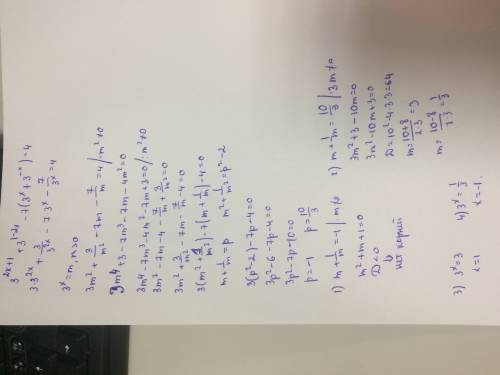 3^{2x+1} + 3^{1-2x} - 7(3^x + 3^{-x}) = 4
3·3^{2x} + \frac{3}{3^{2x}} - 7·3^x - \frac{7}{3^x} = 4
3^x = m, m>0
3m^2 + \frac{3}{m^2} - 7m - \frac{7}{m} = 4 /·m^2≠0
3m^4 + 3 - 7m^3 - 7m - 4m^2 = 0
3m^4 - 7m^3 - 4m^2 - 7m + 3 = 0 /:m^2≠0
3m^2 - 7m - 4 - \frac{7}{m} + \frac{3}{m^2} = 0
3m^2 + \frac{3}{m^2} - 7m - \frac{7}{m} - 4 = 0
3(m^2 + \frac{1}{m^2}) - 7(m + \frac{1}{m}) - 4 = 0
m + \frac{1}{m} = p m^2 + \frac{1}{m^2} = p^2 - 2
3(p^2 - 2) - 7p - 4 = 0
3p^2 - 6 - 7p - 4 = 0
3p^2 - 7p - 10 = 0
p = -1 p = \frac{10}{3}
1) m + \frac{1}{m} = -1 | m≠0
m^2 + m + 1 = 0
D < 0
↓
нет корней
2) m + \frac{1}{m} = \frac{10}{3} |·3m≠0
3m^2 + 3 - 10m = 0
3m^2 - 10m + 3 = 0
D = 10^2 - 4·3·3 = 64
m = \frac{10+8}{2·3} = 3
m = \frac{10-8}{2·3} = \frac{1}{3}
3) 3^x = 3
x = 1
4) 3^x = \frac{1}{3}
x = -1.